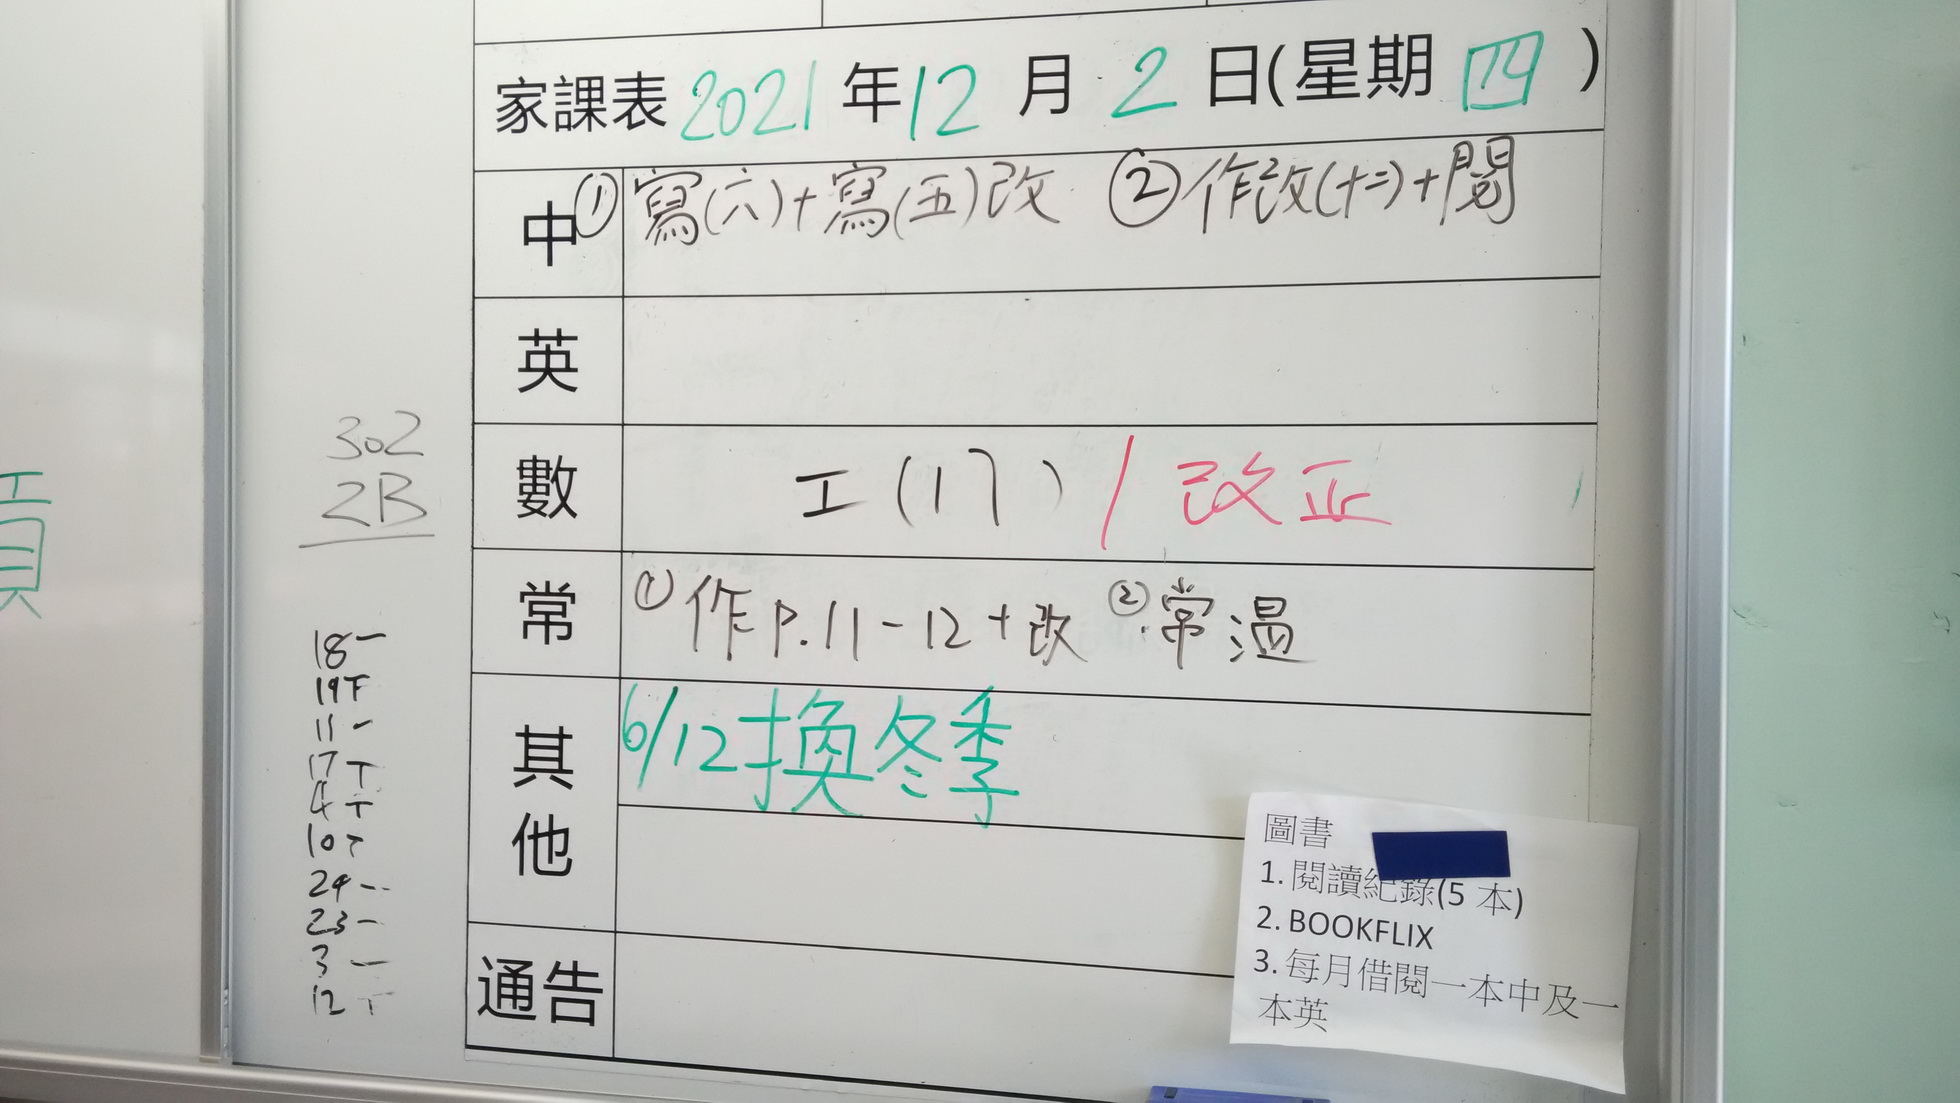 家課表 2021 年 12 月 2 日(星期 四 )
中 ① 寫(六)+寫(五)改 ② 作改(十二)+閱
英
數 工(17) / 改正
常 ① 作 P.11-12+改 ② 常溫
其他 6/12換冬季
通告
302
2B
18 一
19 下
11 一
17 T
4 T
10
24
23 一
3 一
12 T
圖書
1. 閱讀紀錄(5 本)
2. BOOKFLIX
3. 每月借閱一本中及一
本英